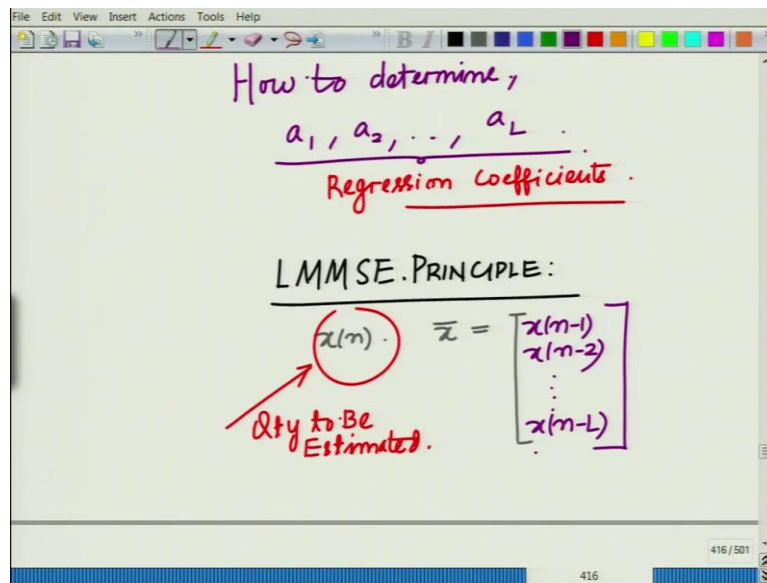 File Edit View Insert Actions Tools Help
How to determine,
a₁, a₂, . . , a_L .
Regression Coefficients .
LMMSE. PRINCIPLE:
x(n) . x̄ = [x(n-1)
x(n-2)
⋮
x(n-L)]
Qty to Be
Estimated.
416 / 501
416